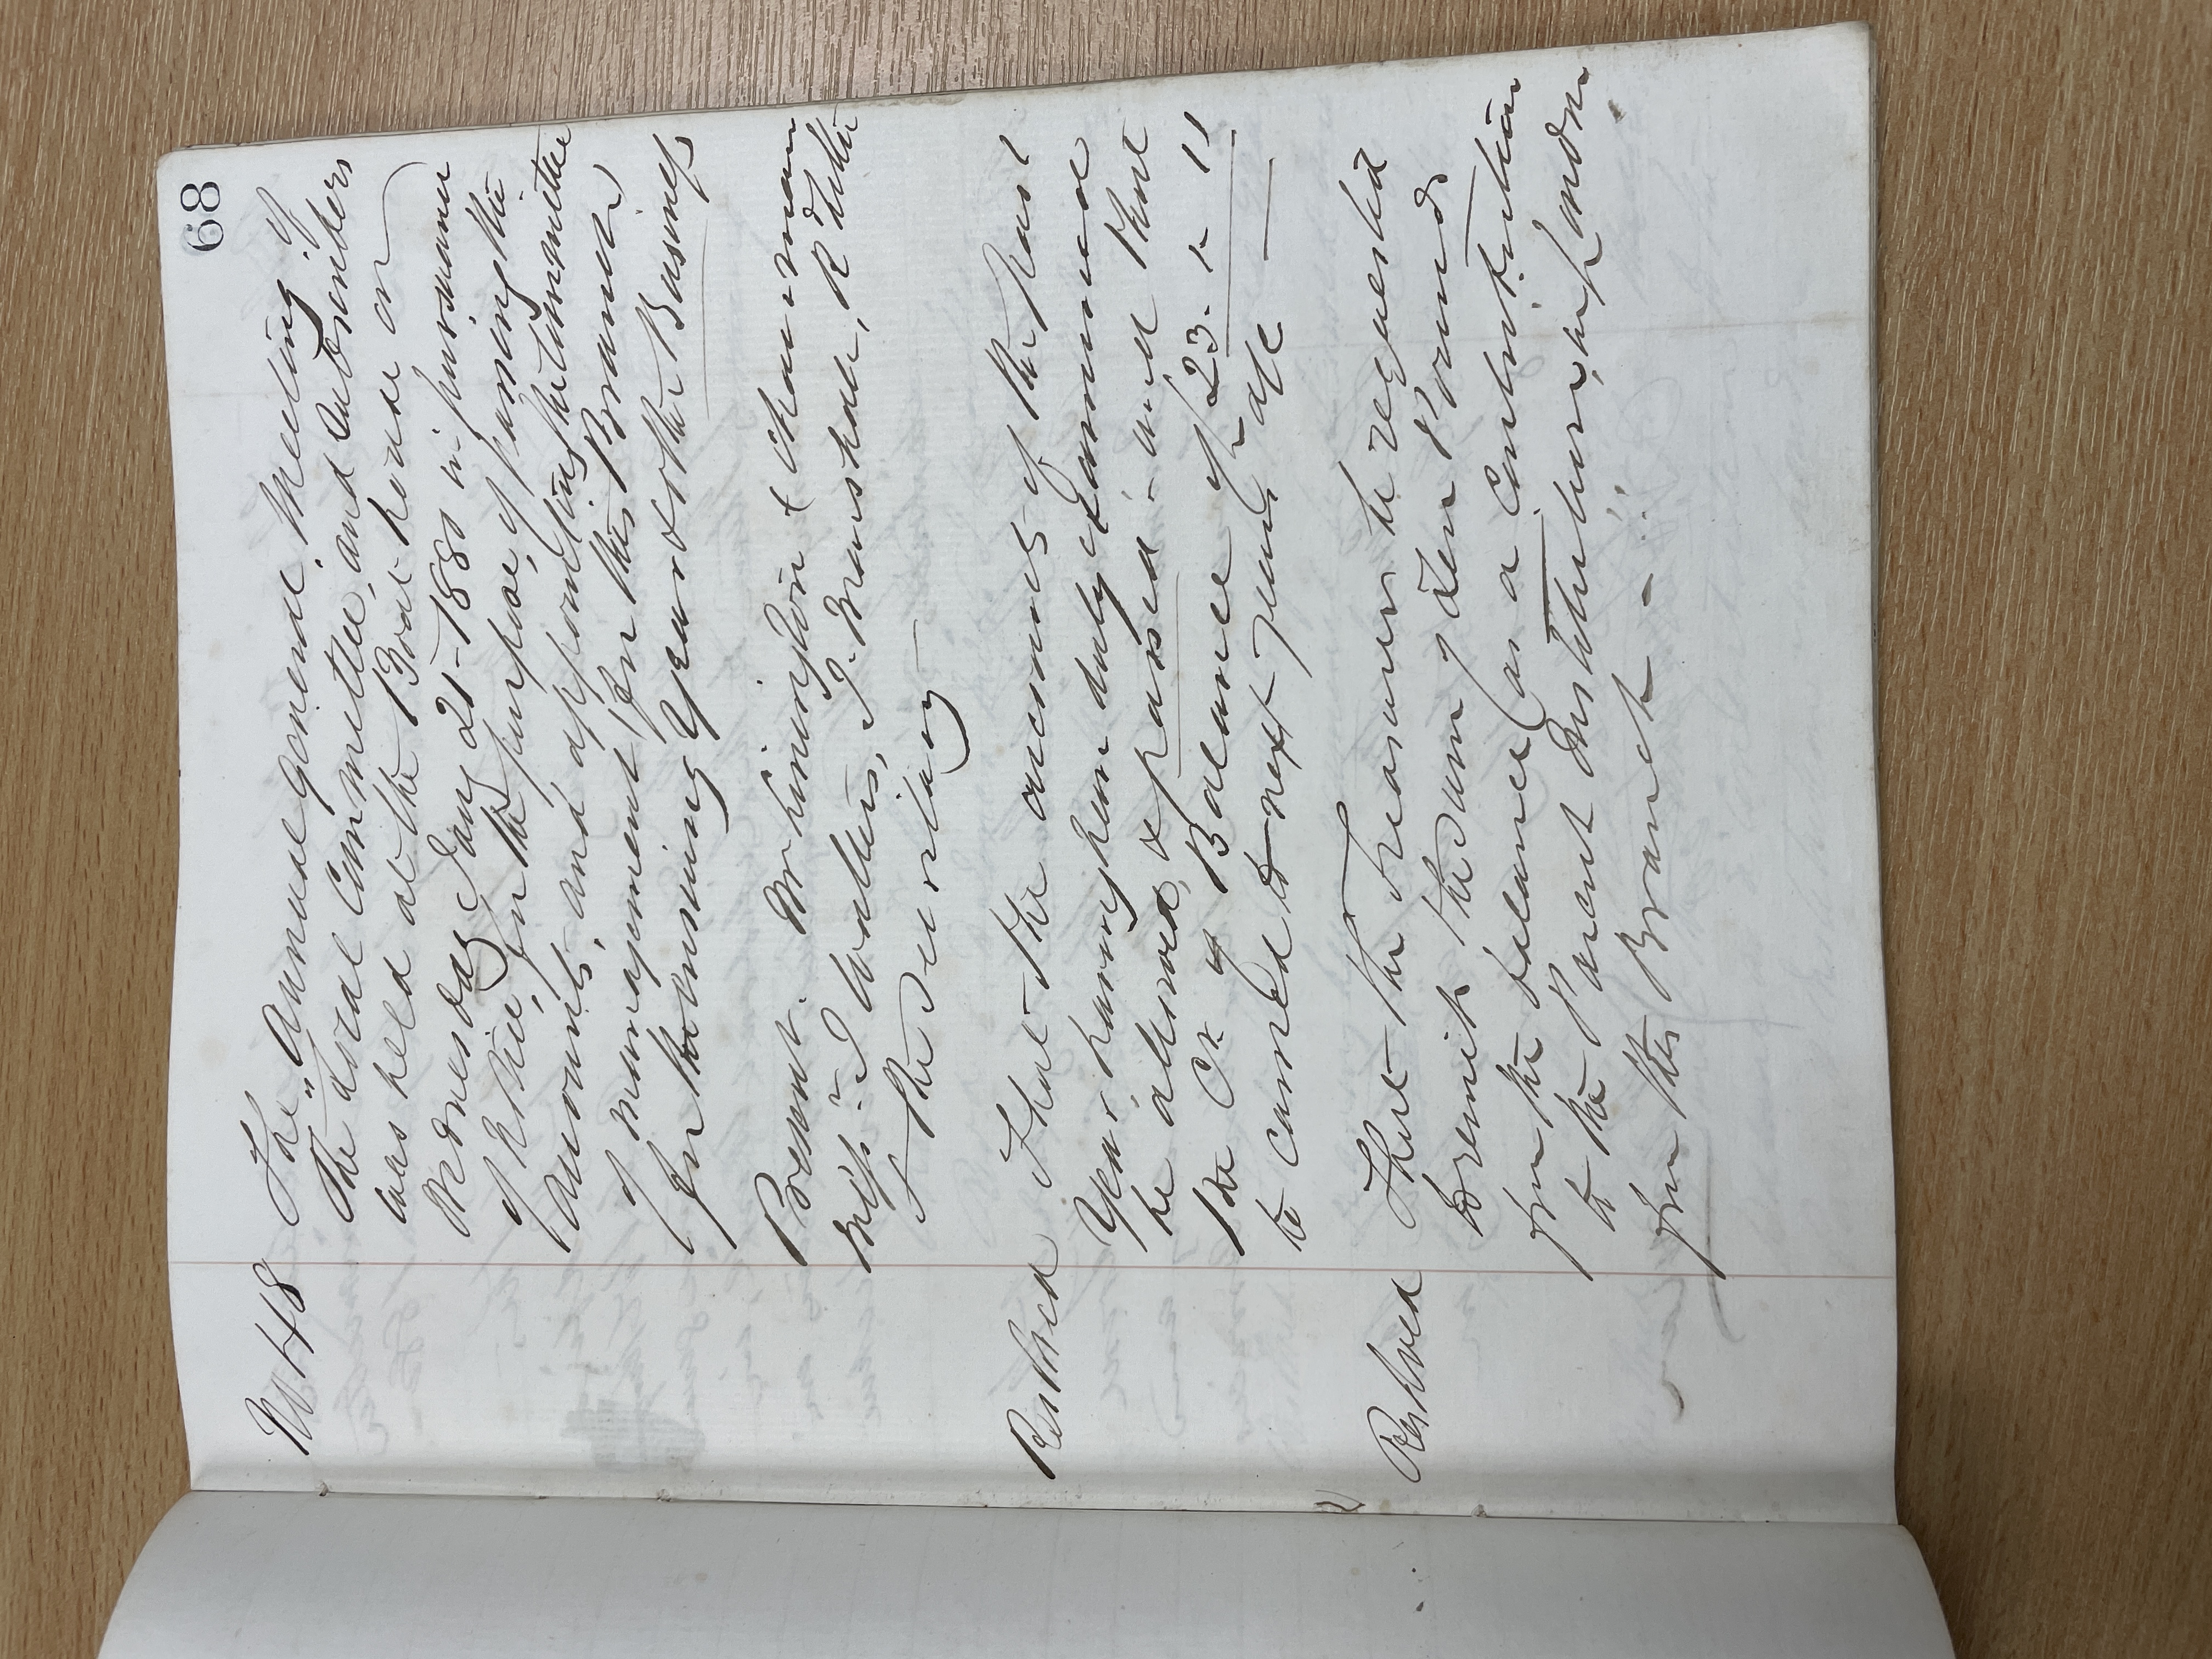 68
No 48 The "Annual General Meeting of
The Local Committee, and Subscribers
was held at the Boat house on
Wednesday Jany 21 - 1880 in pursuance
of Notice, for the purpose, of passing the
Accounts, and appointing the Committee
of management, for this Branch
for the ensuing Year & other Business
Present. Mr Chairman
Messrs J Walters, J. R
& the Secretary
Resolved That the accounts of the past
Year, having been duly examined
be allowed, & passed - and that
the Cr of Balance of £23. " - 11
be carried to next years a/c
Resolved That the Treasurer be requested
to remit the sum of Ten Pounds
from the balance (as a Contribution
to the Parent Institution, in London
from this Branch -